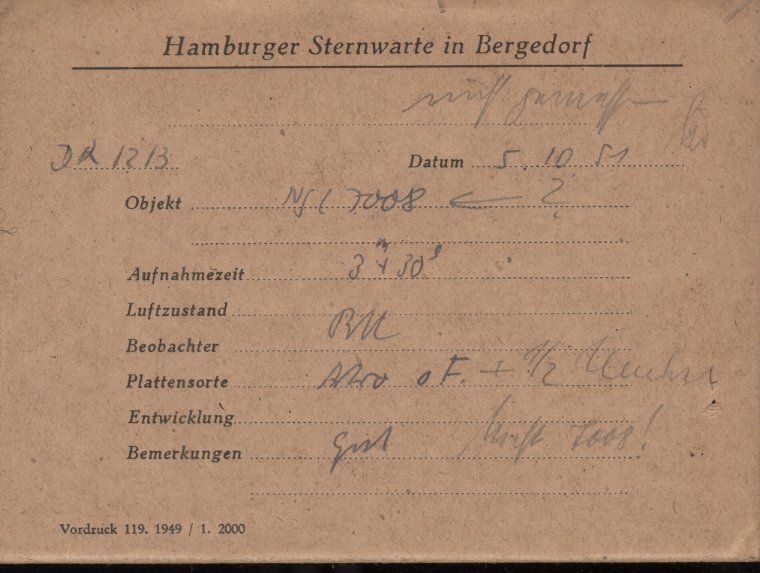 Hamburger Sternwarte in Bergedorf
nicht gemessen
Datum 5. 10. 51
Objekt NGC 7008 ← ?
Aufnahmezeit 3m + 30s
Luftzustand
Beobachter
Plattensorte Astro o F. + 1/2
Entwicklung
Bemerkungen Gut Nicht 7008!
Vordruck 119. 1949 / 1. 2000